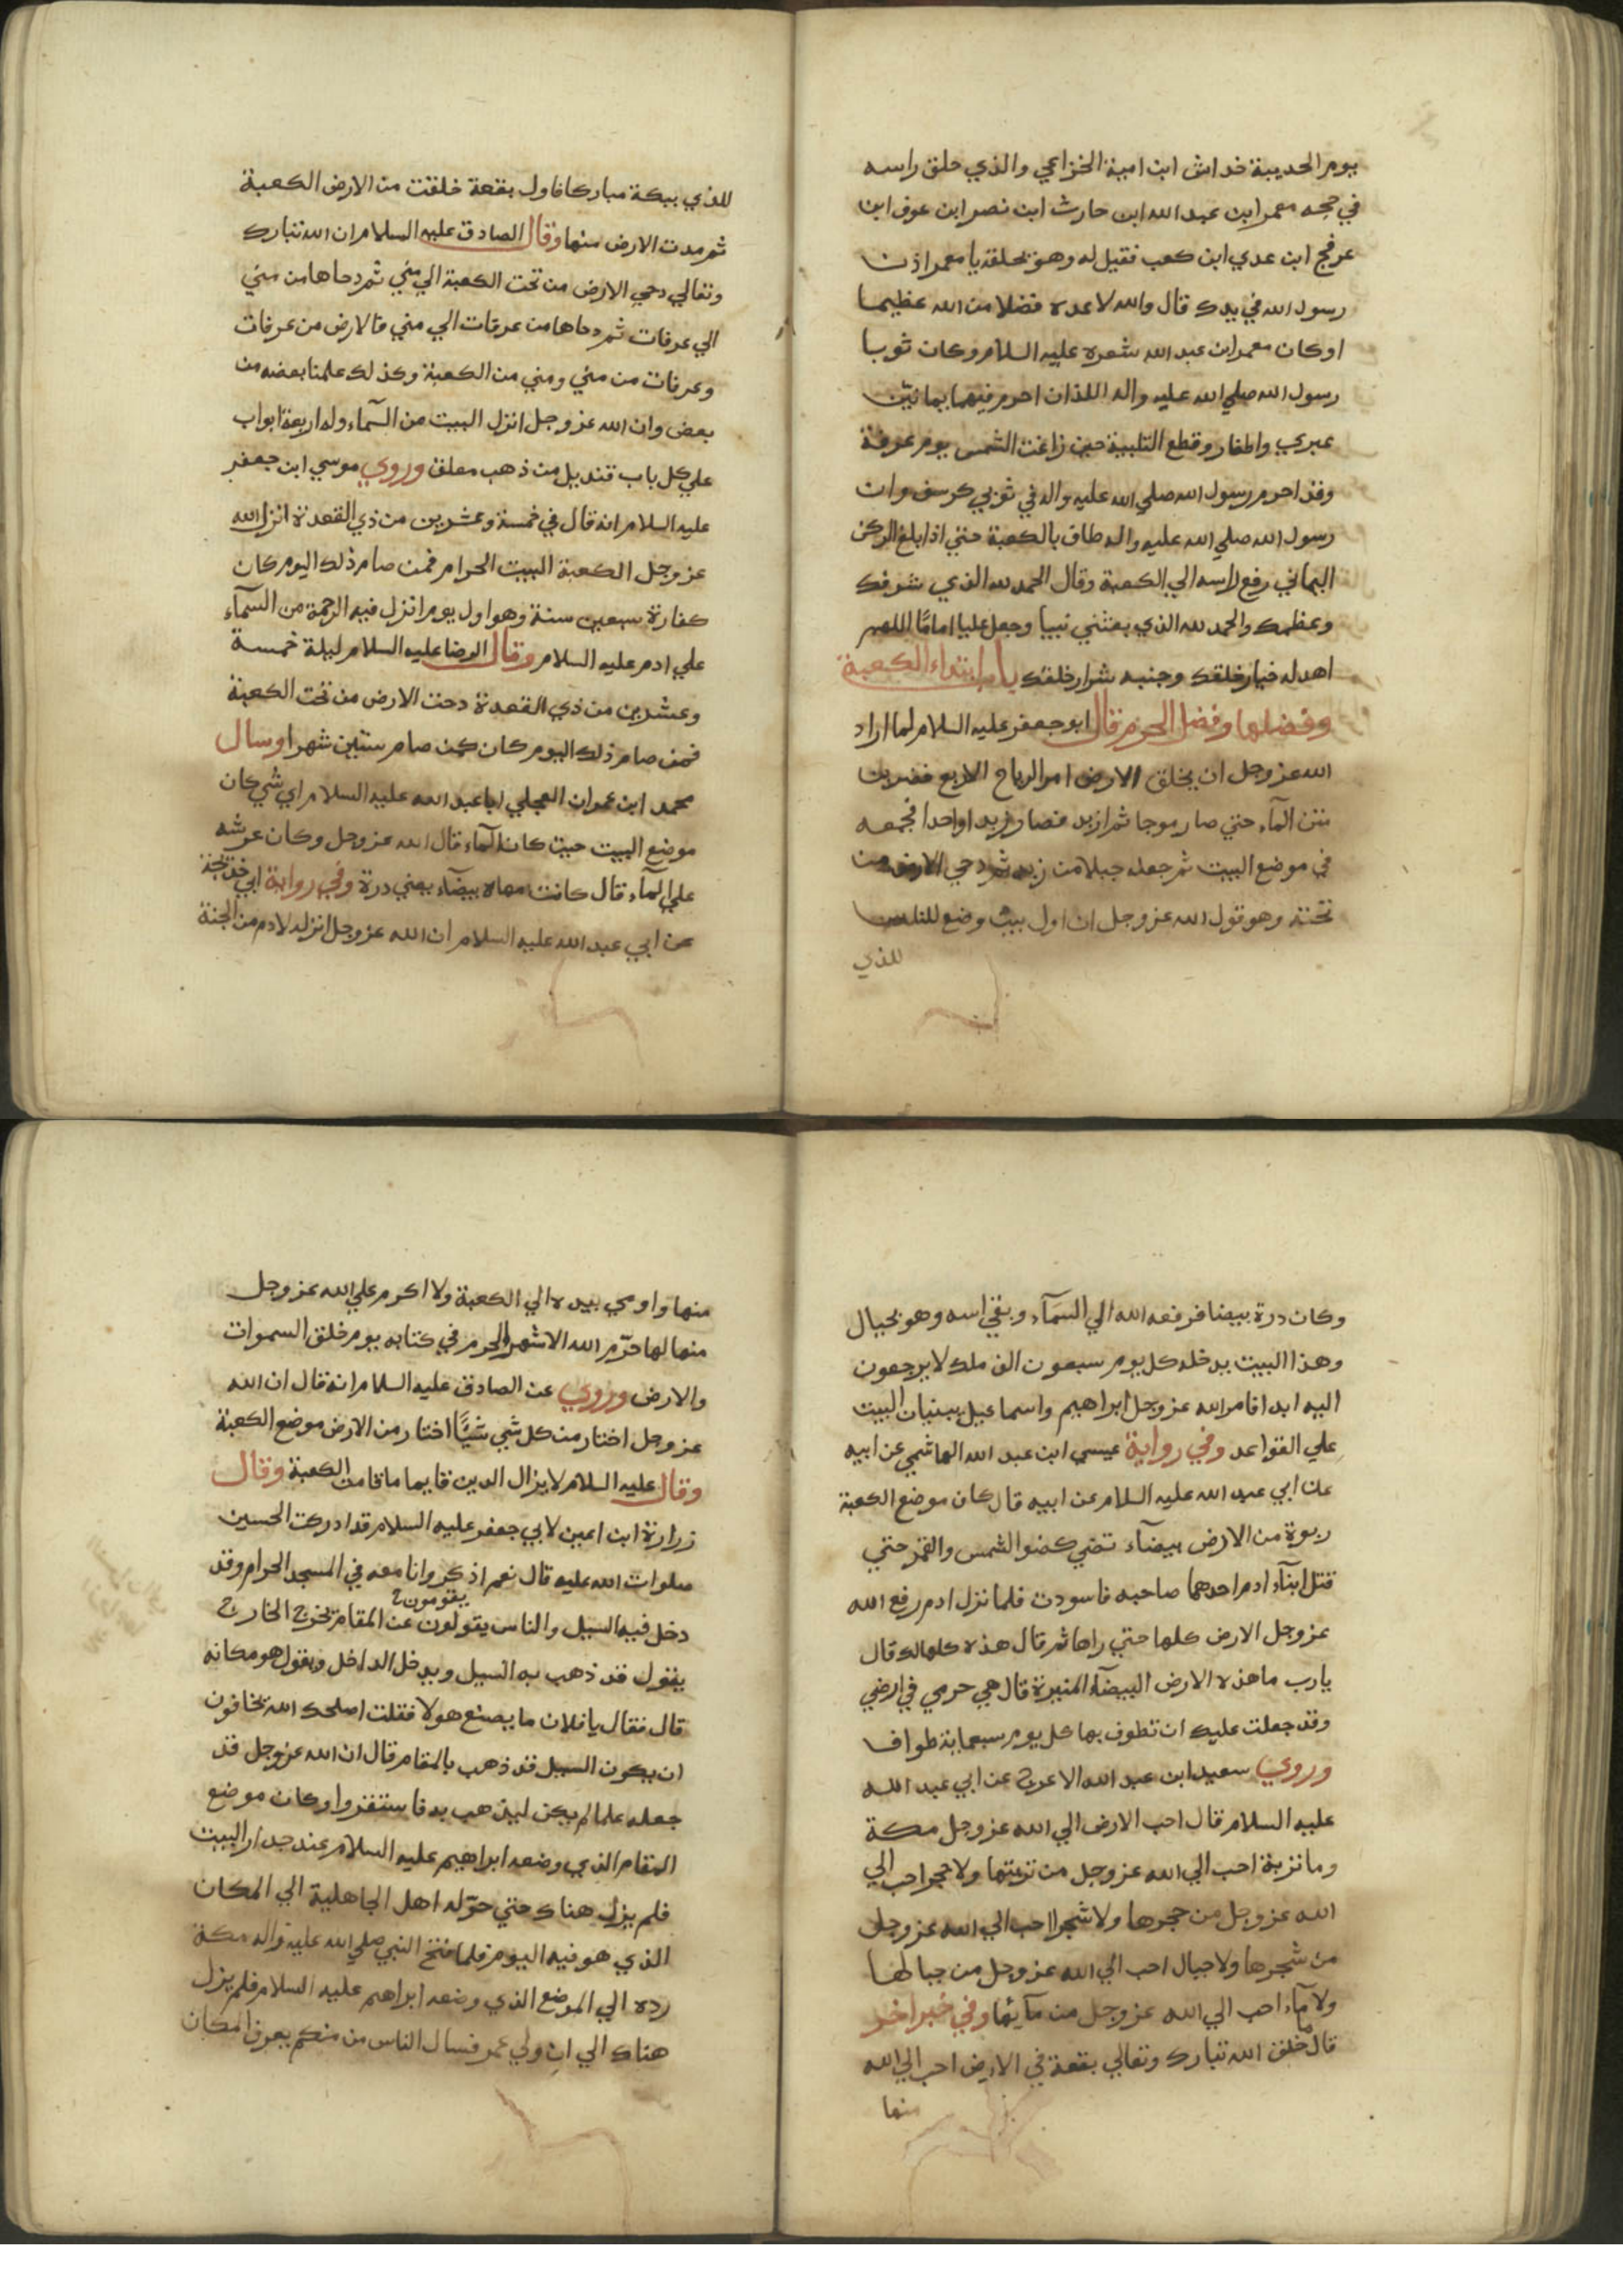 يوم الحديبة خداش ابن امية الخزاعي والذي حلق راسه
في حجه معمر ابن عبد الله ابن حارث ابن نصر ابن عوف ابن
عرفج ابن عدي ابن كعب فقيل له وهو يحلقه يا معمر اذن
رسول الله في يدك قال والله لاعده فضلا من الله عظيما
اوكان معمر ابن عبد الله شعره عليه السلام وكان ثوبا
رسول الله صلي الله عليه واله اللذان احرم فيهما يمانيين
عبري واظفار وقطع التلبية حين زاغت الشمس يوم عرفة
وقد احرم رسول الله صلي الله عليه واله في ثوبي كرسف وان
رسول الله صلي الله عليه واله طاف بالكعبة حتي اذا بلغ الركن
اليماني رفع راسه الي الكعبة وقال الحمد لله الذي شرفك
وعظمك والحمد لله الذي بعثني نبيا وجعل عليا امامًا اللهم
اهد له خيار خلقك وجنبه شرار خلقك باب ابتداء الكعبة
وفضلها وفضل الحرم قال ابو جعفر عليه السلام لما اراد
الله عز وجل ان يخلق الارض امر الرياح الاربع فضربن
متن المآء حتي صار موجا ثم ازبد فصار زبدا واحدا فجمعه
في موضع البيت ثم جعله جبلا من زبد ثم دحي الارض من
تحته وهو قول الله عز وجل ان اول بيت وضع للناس
للذي
للذي ببكة مباركا فاول بقعة خلقت من الارض الكعبة
ثم مدت الارض منها وقال الصادق عليه السلام ان الله تبارك
وتعالي دحي الارض من تحت الكعبة الي مني ثم دحاها من مني
الي عرفات ثم دحاها من عرفات الي مني فالارض من عرفات
وعرفات من مني ومني من الكعبة وكذلك علمنا بعضه من
بعض وان الله عز وجل انزل البيت من السمآء وله اربعة ابواب
علي كل باب قنديل من ذهب معلق وروي موسي ابن جعفر
عليه السلام انه قال في خمسة وعشرين من ذي القعدة انزل الله
عز وجل الكعبة البيت الحرام فمن صام ذلك اليوم كان
كفارة سبعين سنة وهو اول يوم انزل فيه الرحمة من السمآء
علي ادم عليه السلام وقال الرضا عليه السلام ليلة خمسة
وعشرين من ذي القعدة دحت الارض من تحت الكعبة
فمن صام ذلك اليوم كان كمن صام ستين شهرا وسال
محمد ابن عمران العجلي ابا عبد الله عليه السلام اي شي كان
موضع البيت حيث كان المآء قال الله عز وجل وكان عرشه
علي المآء قال كانت مهاة بيضآء يعني درة وفي رواية ابي خديجة
عن ابي عبد الله عليه السلام ان الله عز وجل انزله لادم من الجنة
وكان درة بيضا فرفعه الله الي السمآء وبقي اسه وهو بحيال
وهذا البيت يدخله كل يوم سبعون الف ملك لا يرجعون
اليه ابدا فامر الله عز وجل ابراهيم واسماعيل ببنيان البيت
علي القواعد وفي رواية عيسي ابن عبد الله الهاشمي عن ابيه
عن ابي عبد الله عليه السلام عن ابيه قال كان موضع الكعبة
ربوة من الارض بيضآء تضي كضو الشمس والقمر حتي
قتل ابنآء ادم احدهما صاحبه فاسودت فلما نزل ادم رفع الله
عز وجل الارض كلها حتي راها ثم قال هذه كلها لك قال
يا رب ما هذه الارض البيضآء المنيرة قال هي حرمي في ارضي
وقد جعلت عليك ان تطوف بها كل يوم سبعماية طواف
وروي سعيد ابن عبد الله الاعرج عن ابي عبد الله
عليه السلام قال احب الارض الي الله عز وجل مكة
وما تربة احب الي الله عز وجل من تربتها ولا حجر احب الي
الله عز وجل من حجرها ولا شجرا احب الي الله عز وجل
من شجرها ولا جبال احب الي الله عز وجل من جبالها
ولا مآء احب الي الله عز وجل من مآئها وفي خبر اخر
قال ما خلق الله تبارك وتعالي بقعة في الارض احب الي الله
منها
منها واومي بيده الي الكعبة ولا اكرم علي الله عز وجل
منها لها حرّم الله الاشهر الحرم في كتابه يوم خلق السموات
والارض وروي عن الصادق عليه السلام انه قال ان الله
عز وجل اختار من كل شي شيًّا اختار من الارض موضع الكعبة
وقال عليه السلام لا يزال الدين قايما ما قامت الكعبة وقال
زرارة ابن اعين لابي جعفر عليه السلام قد ادركت الحسين
صلوات الله عليه قال نعم اذكر وانا معه في المسجد الحرام وقد
يقومون
دخل فيه السيل والناس يقولون عن المقام يخرج الخارج
يقول قد ذهب به السيل ويدخل الداخل ويقول هو مكانه
قال فقال يا فلان ما يصنع هولا فقلت اصلحك الله يخافون
ان يكون السيل قد ذهب بالمقام قال ان الله عز وجل قد
جعله علما لم يكن ليذهب به فاستقروا وكان موضع
المقام الذي وضعه ابراهيم عليه السلام عند جدار البيت
فلم يزل هناك حتي حوّله اهل الجاهلية الي المكان
الذي هو فيه اليوم فلما فتح النبي صلي الله عليه واله مكة
رده الي الموضع الذي وضعه ابراهيم عليه السلام فلم يزل
هناك الي ان ولي عمر فسال الناس من منكم يعرف المكان